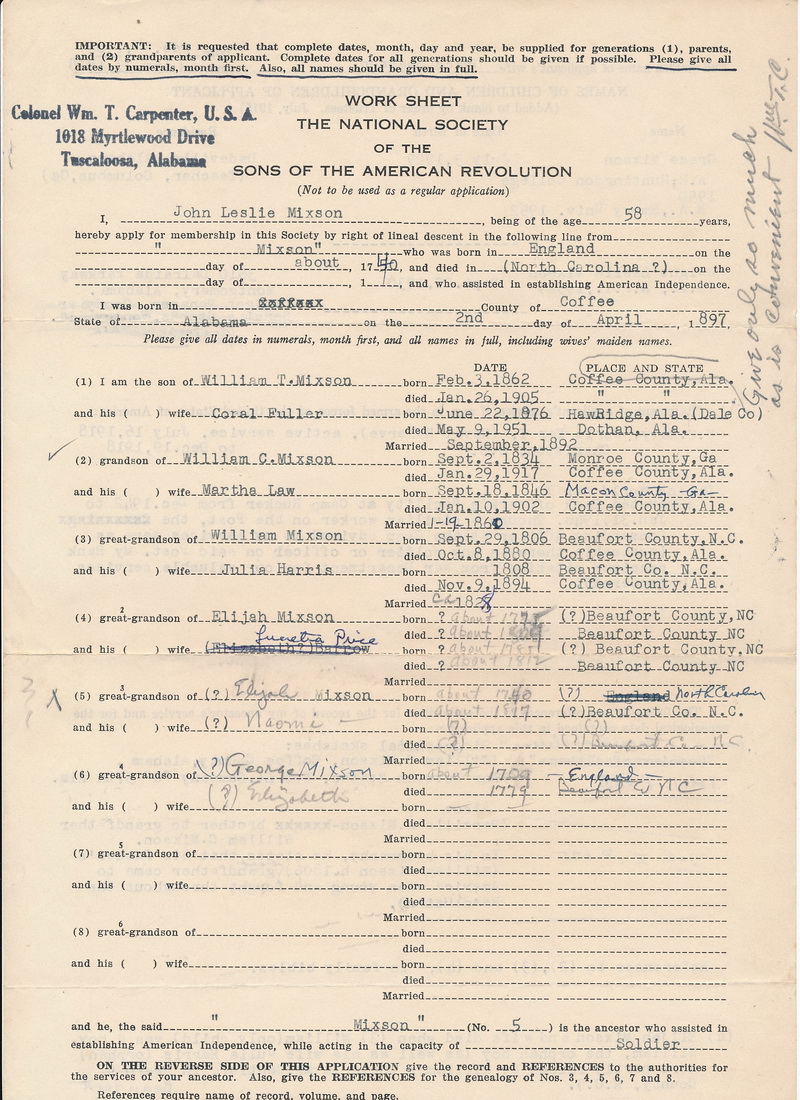 IMPORTANT: It is requested that complete dates, month, day and year, be supplied for generations (1), parents,
and (2) grandparents of applicant. Complete dates for all generations should be given if possible. Please give all
dates by numerals, month first. Also, all names should be given in full.
Colonel Wm. T. Carpenter, U. S. A.
1018 Myrtlewood Drive
Tuscaloosa, Alabama
Give only so much
as is convenient
WORK SHEET
THE NATIONAL SOCIETY
OF THE
SONS OF THE AMERICAN REVOLUTION
(Not to be used as a regular application)
I, John Leslie Mixson, being of the age 58 years,
hereby apply for membership in this Society by right of lineal descent in the following line from
" Mixson" who was born in England on the
day of about, 1750, and died in (North Carolina ?) on the
day of 1, and who assisted in establishing American Independence.
I was born in County of Coffee
State of Alabama on the 2nd day of April, 1897,
Please give all dates in numerals, month first, and all names in full, including wives' maiden names.
DATE PLACE AND STATE
(1) I am the son of William T.Mixson born Feb.3,1862 Coffee County,Ala.
died Jan.26,1905 " "
and his ( ) wife Coral Fuller born June 22,1876 HawRidge,Ala.(Dale Co)
died May 9,1951 Dothan, Ala.
Married September,1892
(2) grandson of William C.Mixson born Sept.2,1834 Monroe County,Ga
died Jan.29,1917 Coffee County,Ala.
and his ( ) wife Martha Law born Sept.18,1846 Macon County Ga
died Jan.10,1902 Coffee County,Ala.
Married 1-19-1860
(3) great-grandson of William Mixson born Sept.29,1806 Beaufort County,N.C.
died Oct.8,1880 Coffee County,Ala.
and his ( ) wife Julia Harris born 1808 Beaufort Co. N.C.
died Nov.9,1894 Coffee County,Ala.
Married Ca 1828
(4) great-grandson of 2 Elijah Mixson born ? about (?)Beaufort County,NC
died ? about Beaufort County NC
Lucretia Price
and his ( ) wife (Elizabeth?)Barrow born ? about (?) Beaufort County.NC
died ? about 1812 Beaufort County NC
Married
(5) great-grandson of 3 (?) Elijah Mixson born about 1740 (?) England North Carolina
died about (?)Beaufort Co. N.C.
and his ( ) wife (?) Naomi born (?) (?)
died (?) (?) Beaufort Co N.C.
Married
(6) great-grandson of 4 (?) George Mixson born about 1709 England
died 1779 Beaufort Co NC
and his ( ) wife (?) Elizabeth born
died
Married
(7) great-grandson of 5 born
died
and his ( ) wife born
died
Married
(8) great-grandson of 6 born
died
and his ( ) wife born
died
Married
and he, the said " Mixson " (No. 5) is the ancestor who assisted in
establishing American Independence, while acting in the capacity of Soldier
ON THE REVERSE SIDE OF THIS APPLICATION give the record and REFERENCES to the authorities for
the services of your ancestor. Also, give the REFERENCES for the genealogy of Nos. 3, 4, 5, 6, 7 and 8.
References require name of record, volume, and page.